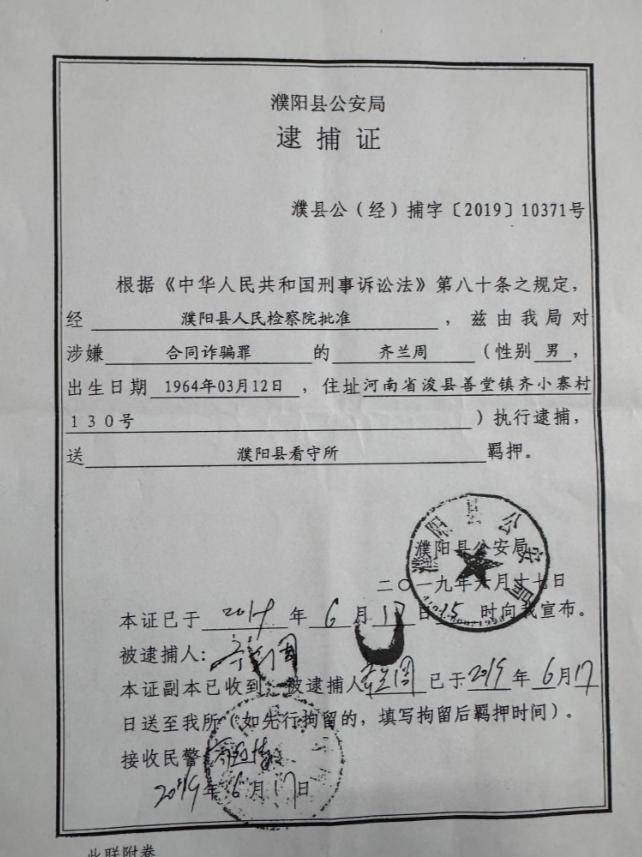 濮阳县公安局
逮捕证
濮县公（经）捕字〔2019〕10371号
根据《中华人民共和国刑事诉讼法》第八十条之规定，
经 濮阳县人民检察院批准 ，兹由我局对
涉嫌 合同诈骗罪 的 齐兰周 （性别 男 ，
出生日期 1964年03月12日 ，住址 河南省浚县善堂镇齐小寨村
130号 ）执行逮捕，
送 濮阳县看守所 羁押。
濮阳县公安局
濮阳县公安局
二〇一九年六月十七日
本证已于 2019 年 6 月 17 日 15 时向我宣布。
被逮捕人：齐兰周
本证副本已收到，被逮捕人 齐兰周 已于 2019 年 6 月 17
日送至我所（如先行拘留的，填写拘留后羁押时间）。
接收民警
2019年6月17日
此联附卷